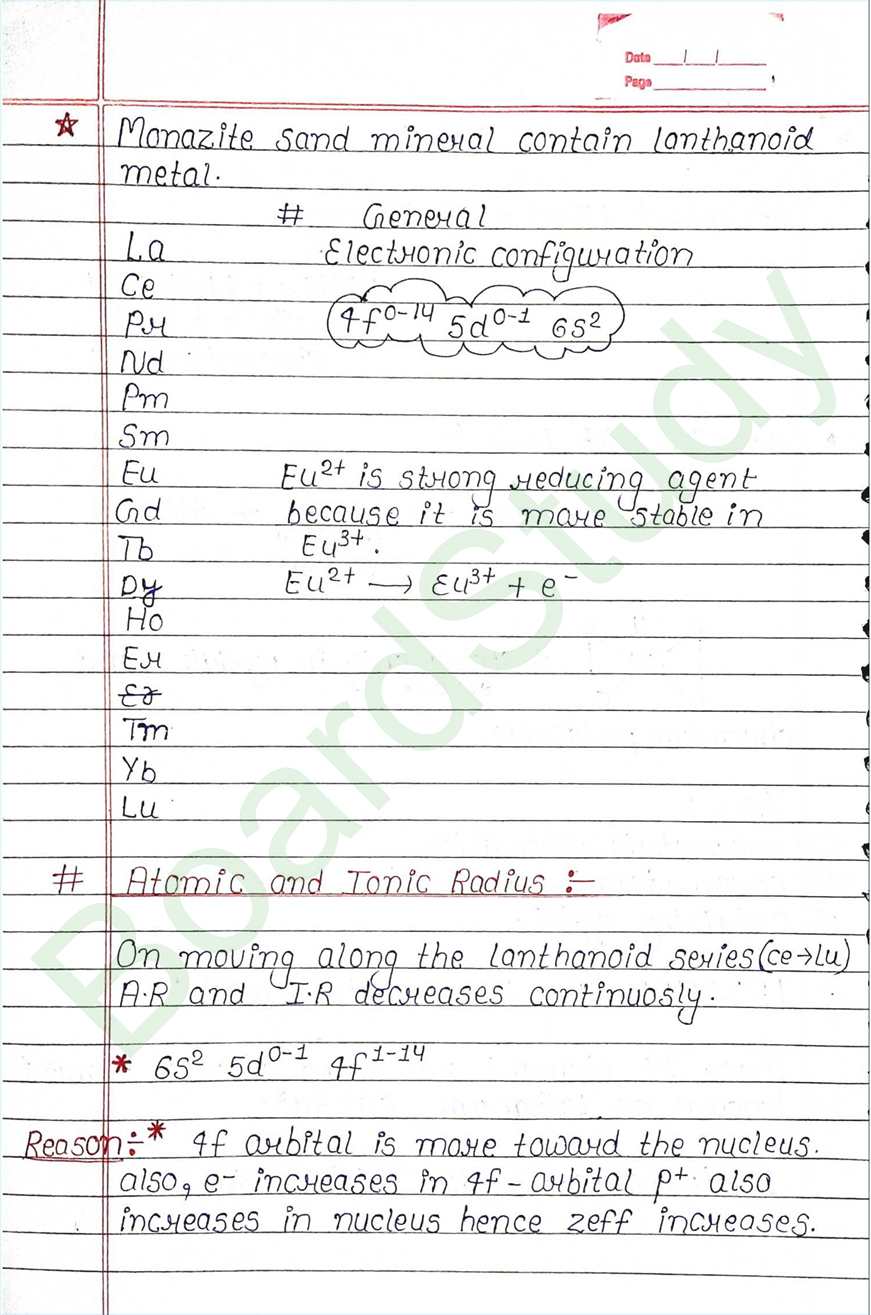 Date __/__/__
Page ________
☆ Monazite sand mineral contain lanthanoid
metal.
# General
La Electronic configuration
Ce
Pr 4f⁰⁻¹⁴ 5d⁰⁻¹ 6s²
Nd
Pm
Sm
Eu Eu²⁺ is strong reducing agent
Gd because it is more stable in
Tb Eu³⁺.
Dy Eu²⁺ → Eu³⁺ + e⁻
Ho
Er
Tm
Yb
Lu
# Atomic and Ionic Radius :-
On moving along the lanthanoid series (Ce→Lu)
A.R and I.R decreases continuosly.
* 6s² 5d⁰⁻¹ 4f¹⁻¹⁴
Reason:-* 4f orbital is more toward the nucleus.
also, e⁻ increases in 4f-orbital p⁺ also
increases in nucleus hence zeff increases.
BoardStudy